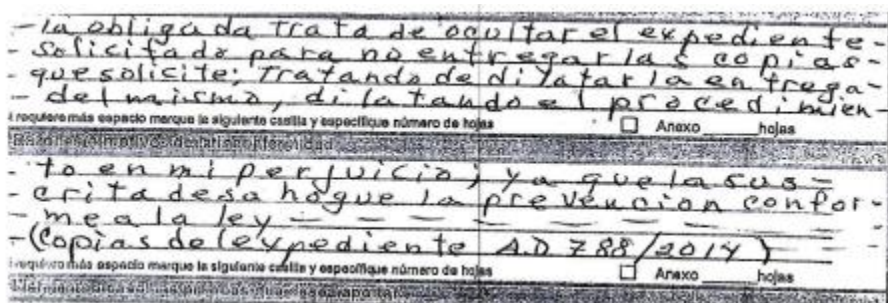 -la obligada trata de ocultar el expediente-
-solicitado para no entregar las copias-
-que solicite; Tratando de dilatar la entrega-
-del mismo, dilatando el procedimien-
i requiere más espacio marque la siguiente casilla y especifique número de hojas □ Anexo ______ hojas
-to en mi perjuicio; ya que la sus-
crita desahogue la prevencion confor-
-me a la ley - - - - -
-(Copias del expediente A.D 788/2014)
i requiere más espacio marque la siguiente casilla y especifique número de hojas □ Anexo ______ hojas